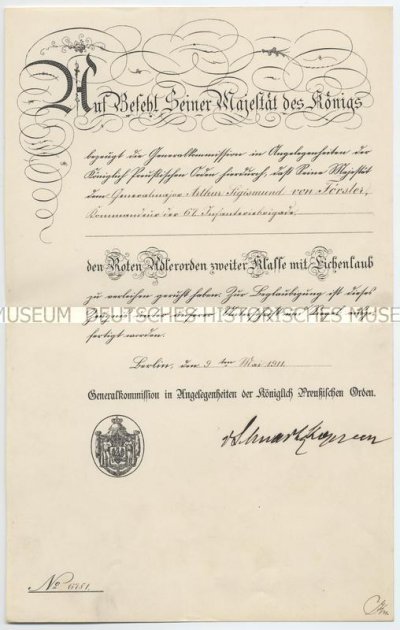 Auf Befehl Seiner Majestät des Königs
bezeugt die Generalkommission in Angelegenheiten der
Königlich Preußischen Orden hierdurch, daß Seine Majestät
dem Generalmajor Arthur Sigismund von Förster,
Kommandeur der 67. Infanteriebrigade,
den Roten Adlerorden zweiter Klasse mit Eichenlaub
zu verleihen geruht haben. Zur Beglaubigung ist dieses
MUSEUM DEUTSCHES HISTORISCHES MUSEUM
fertigt worden.
Berlin, den 9ten Mai 1911.
Generalkommission in Angelegenheiten der Königlich Preußischen Orden.
No